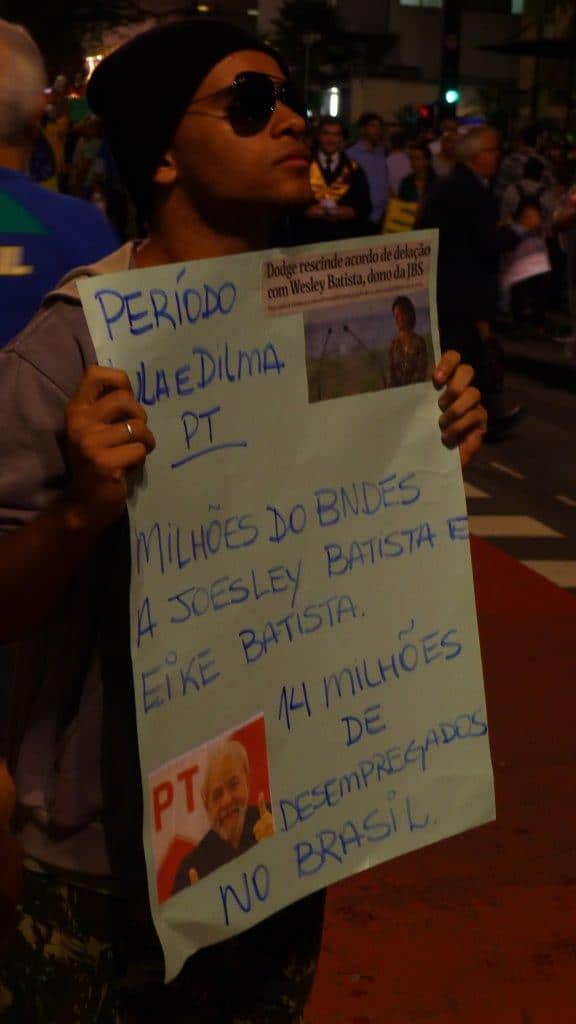 PERÍODO
LULA E DILMA
PT
Dodge rescinde acordo de delação
com Wesley Batista, dono da JBS
MILHÕES DO BNDES
A JOESLEY BATISTA E
EIKE BATISTA.
14 MILHÕES
DE
DESEMPREGADOS
NO BRASIL.
PT